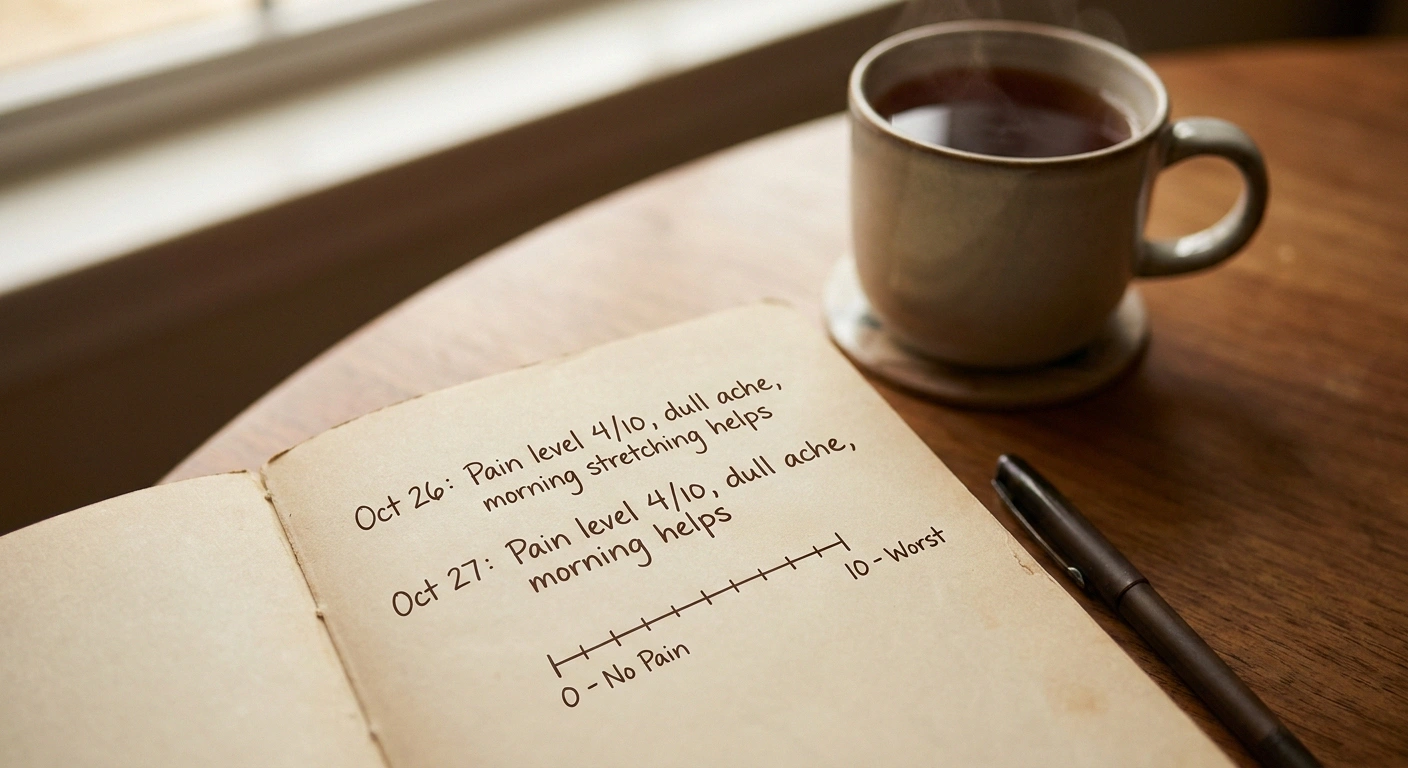 Oct 26: Pain level 4/10, dull ache,
morning stretching helps
Oct 27: Pain level 4/10, dull ache,
morning helps
10 - Worst
0 - No Pain